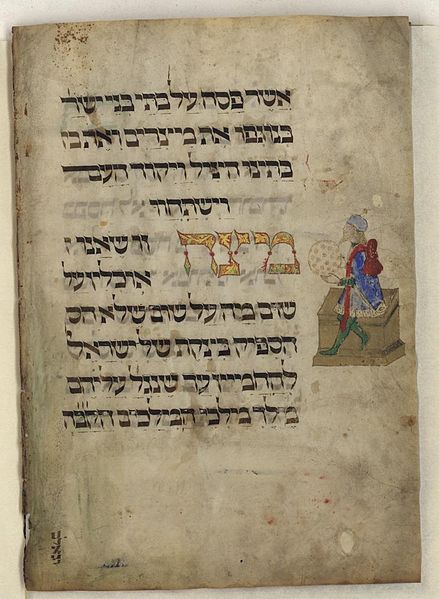 אשר פסח על בתי בני ישר
בנוגפו את מיצרים ואת בו
בתינו היציל ויקוד העם
וישתחוו
מיצה זו שאנו ז
אוכלין על
שום מה על שום שלא הס
הספיק ביצקת של ישראל
להחמייץ עד שנגל עליהם
מילך מילכי המילכים הקבה